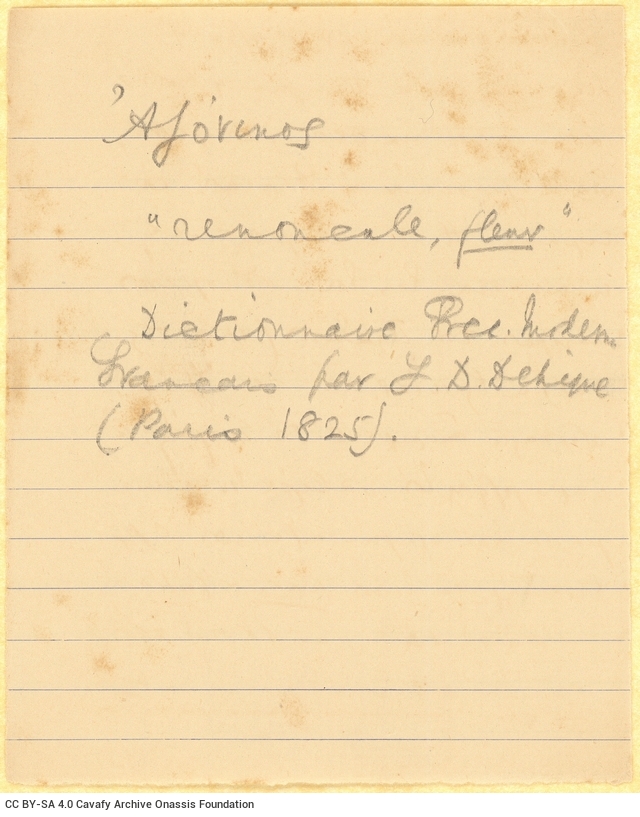 "renoncule, fleur"
Dictionnaire Grec. Modern.
Francais par F. D. Deheque
(Paris 1825).
CC BY-SA 4.0 Cavafy Archive Onassis Foundation